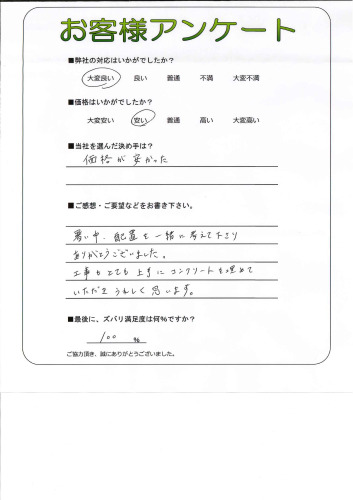 お客様アンケート
■弊社の対応はいかがでしたか?
大変良い 良い 普通 不満 大変不満
■価格はいかがでしたか?
大変安い 安い 普通 高い 大変高い
■当社を選んだ決め手は?
価格が安かった
■ご感想・ご要望などをお書き下さい。
暑い中、配置を一緒に考えて下さり
ありがとうございました。
工事もとても上手にコンクリートを埋めて
いただきうれしく思います。
■最後に、ズバリ満足度は何%ですか?
100 %
ご協力頂き、誠にありがとうございました。